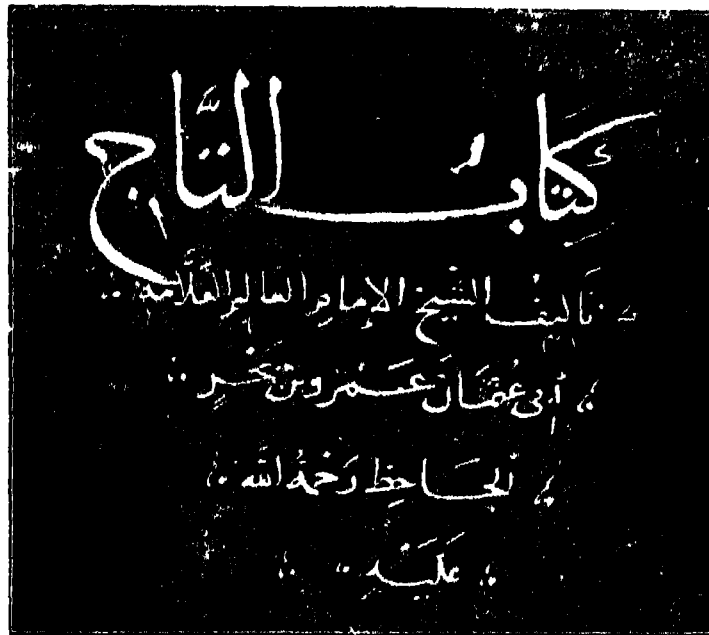 كِتَابُ التَّاجِ
تَأليفُ الشَّيْخِ الإِمَامِ العَالِمِ العَلَّامَةِ
أبي عُثْمَانَ عَمْرِو بْنِ بَحْرٍ
الجَاحِظِ رَحْمَةُ اللَّه
عَلَيْهِ